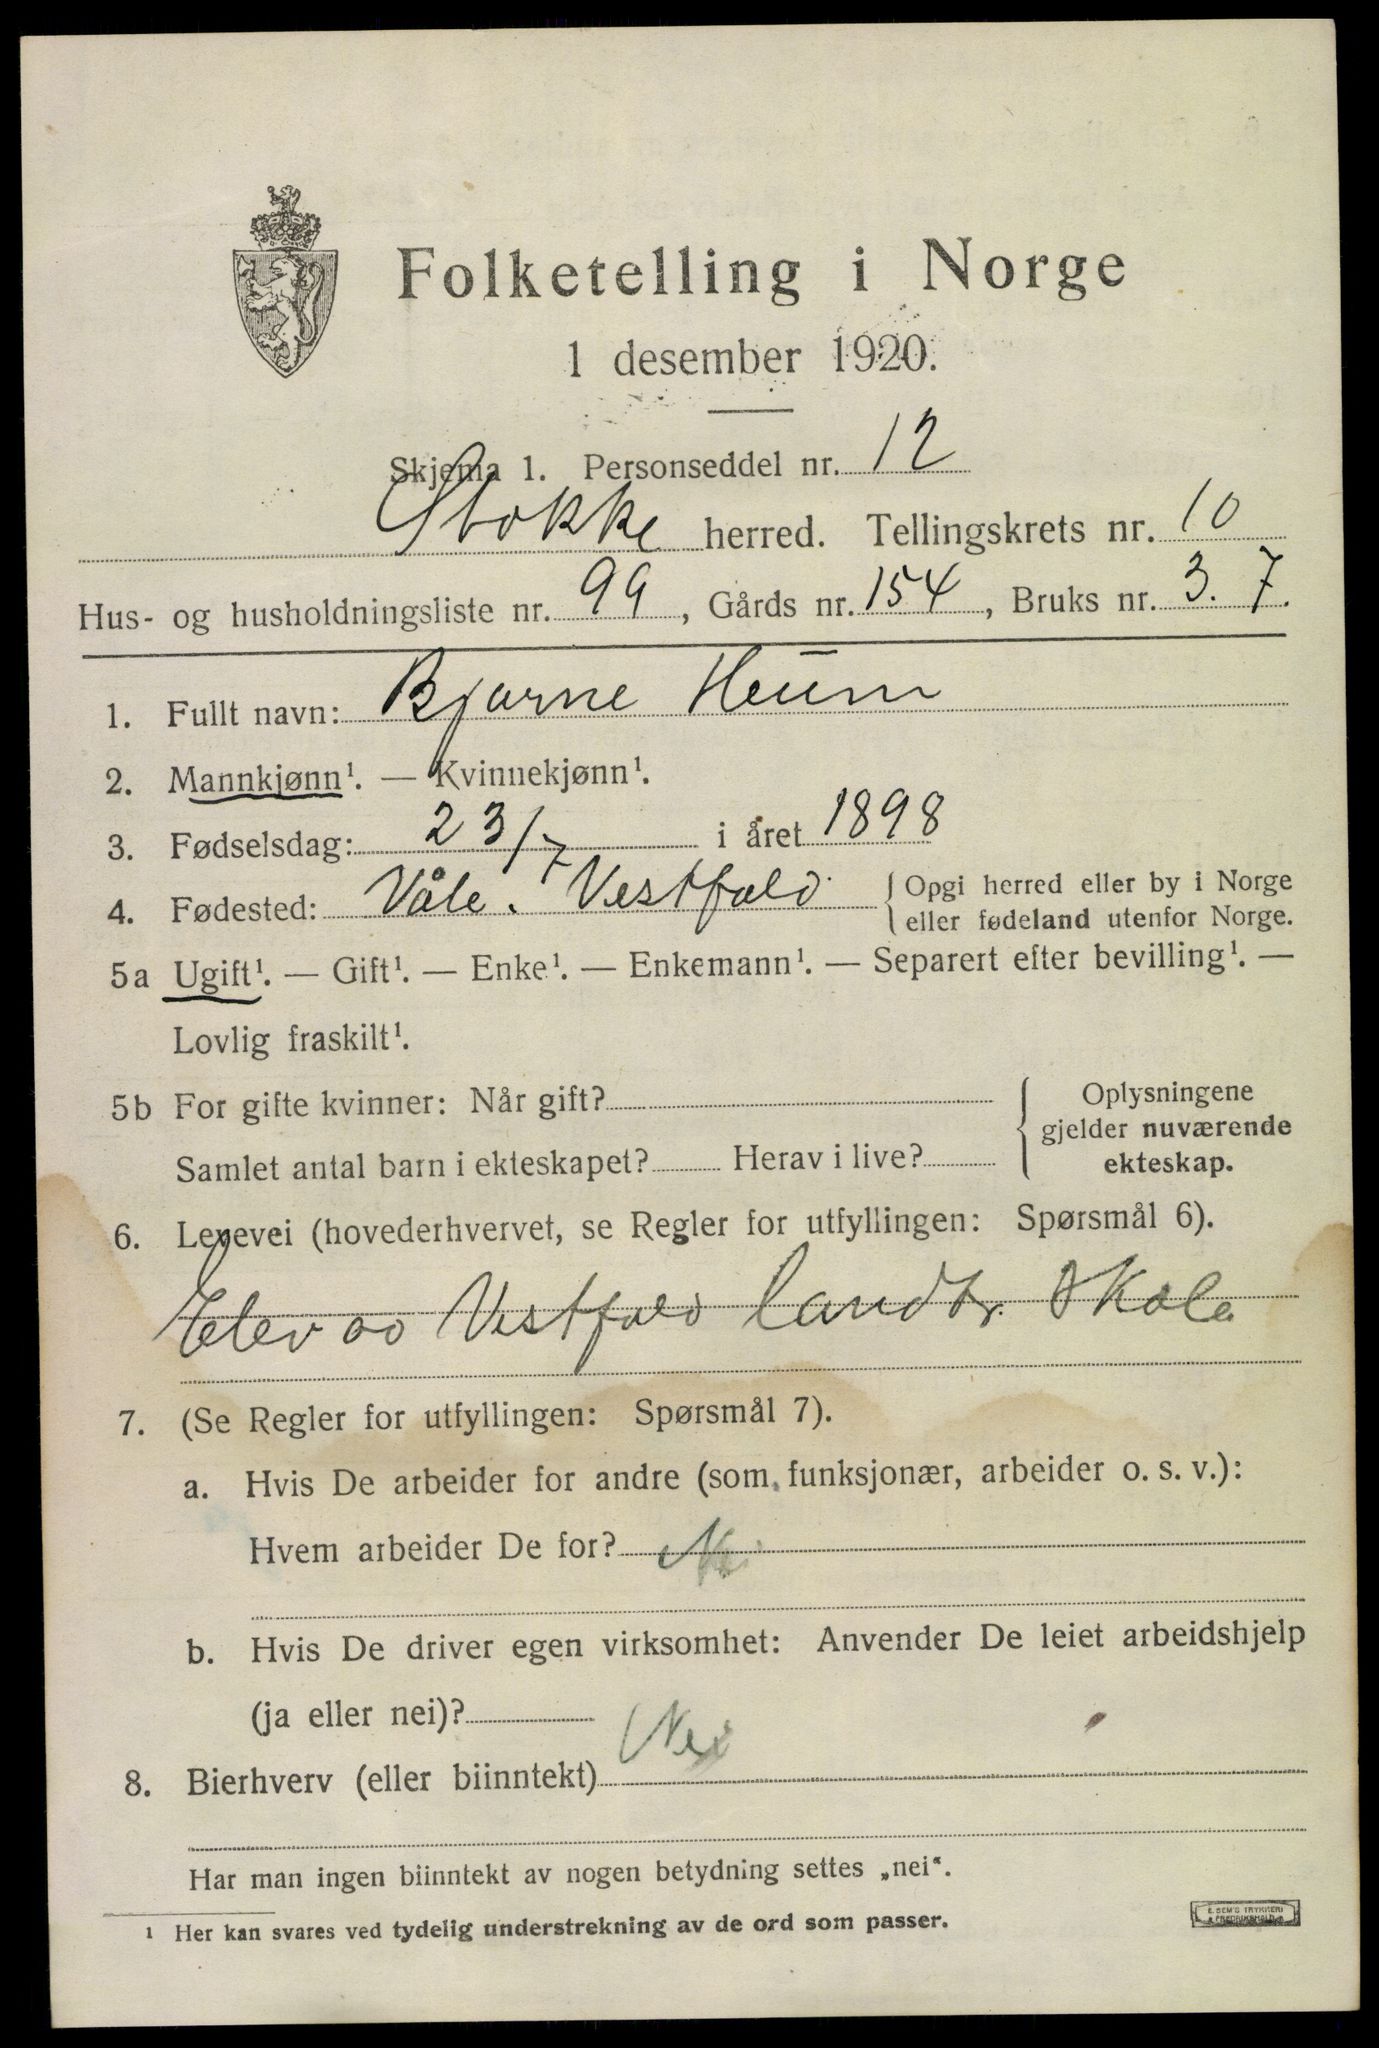 Folketelling i Norge
1 desember 1920.
Skjema 1. Personseddel nr. 12
Stokke herred. Tellingskrets nr. 10
Hus- og husholdningsliste nr. 99, Gårds nr. 154, Bruks nr. 3. 7.
1. Fullt navn: Bjarne Heum
2. Mannkjønn¹. — Kvinnekjønn¹.
3. Fødselsdag: 23/7 i året 1898
4. Fødested: Våle. Vestfold { Opgi herred eller by i Norge
eller fødeland utenfor Norge.
5a Ugift¹. — Gift¹. — Enke¹. — Enkemann¹. — Separert efter bevilling¹. —
Lovlig fraskilt¹.
5b For gifte kvinner: Når gift?
Samlet antal barn i ekteskapet? Herav i live?
{ Oplysningene
gjelder nuværende
ekteskap.
6. Levevei (hovederhvervet, se Regler for utfyllingen: Spørsmål 6).
Elev av Vestfold landbr. Skole
7. (Se Regler for utfyllingen: Spørsmål 7).
a. Hvis De arbeider for andre (som funksjonær, arbeider o. s. v.):
Hvem arbeider De for?
b. Hvis De driver egen virksomhet: Anvender De leiet arbeidshjelp
(ja eller nei)?
8. Bierhverv (eller biinntekt) Nei
Har man ingen biinntekt av nogen betydning settes „nei“.
¹ Her kan svares ved tydelig understrekning av de ord som passer.
E. SEM'S TRYKKERI
FREDRIKSHALD